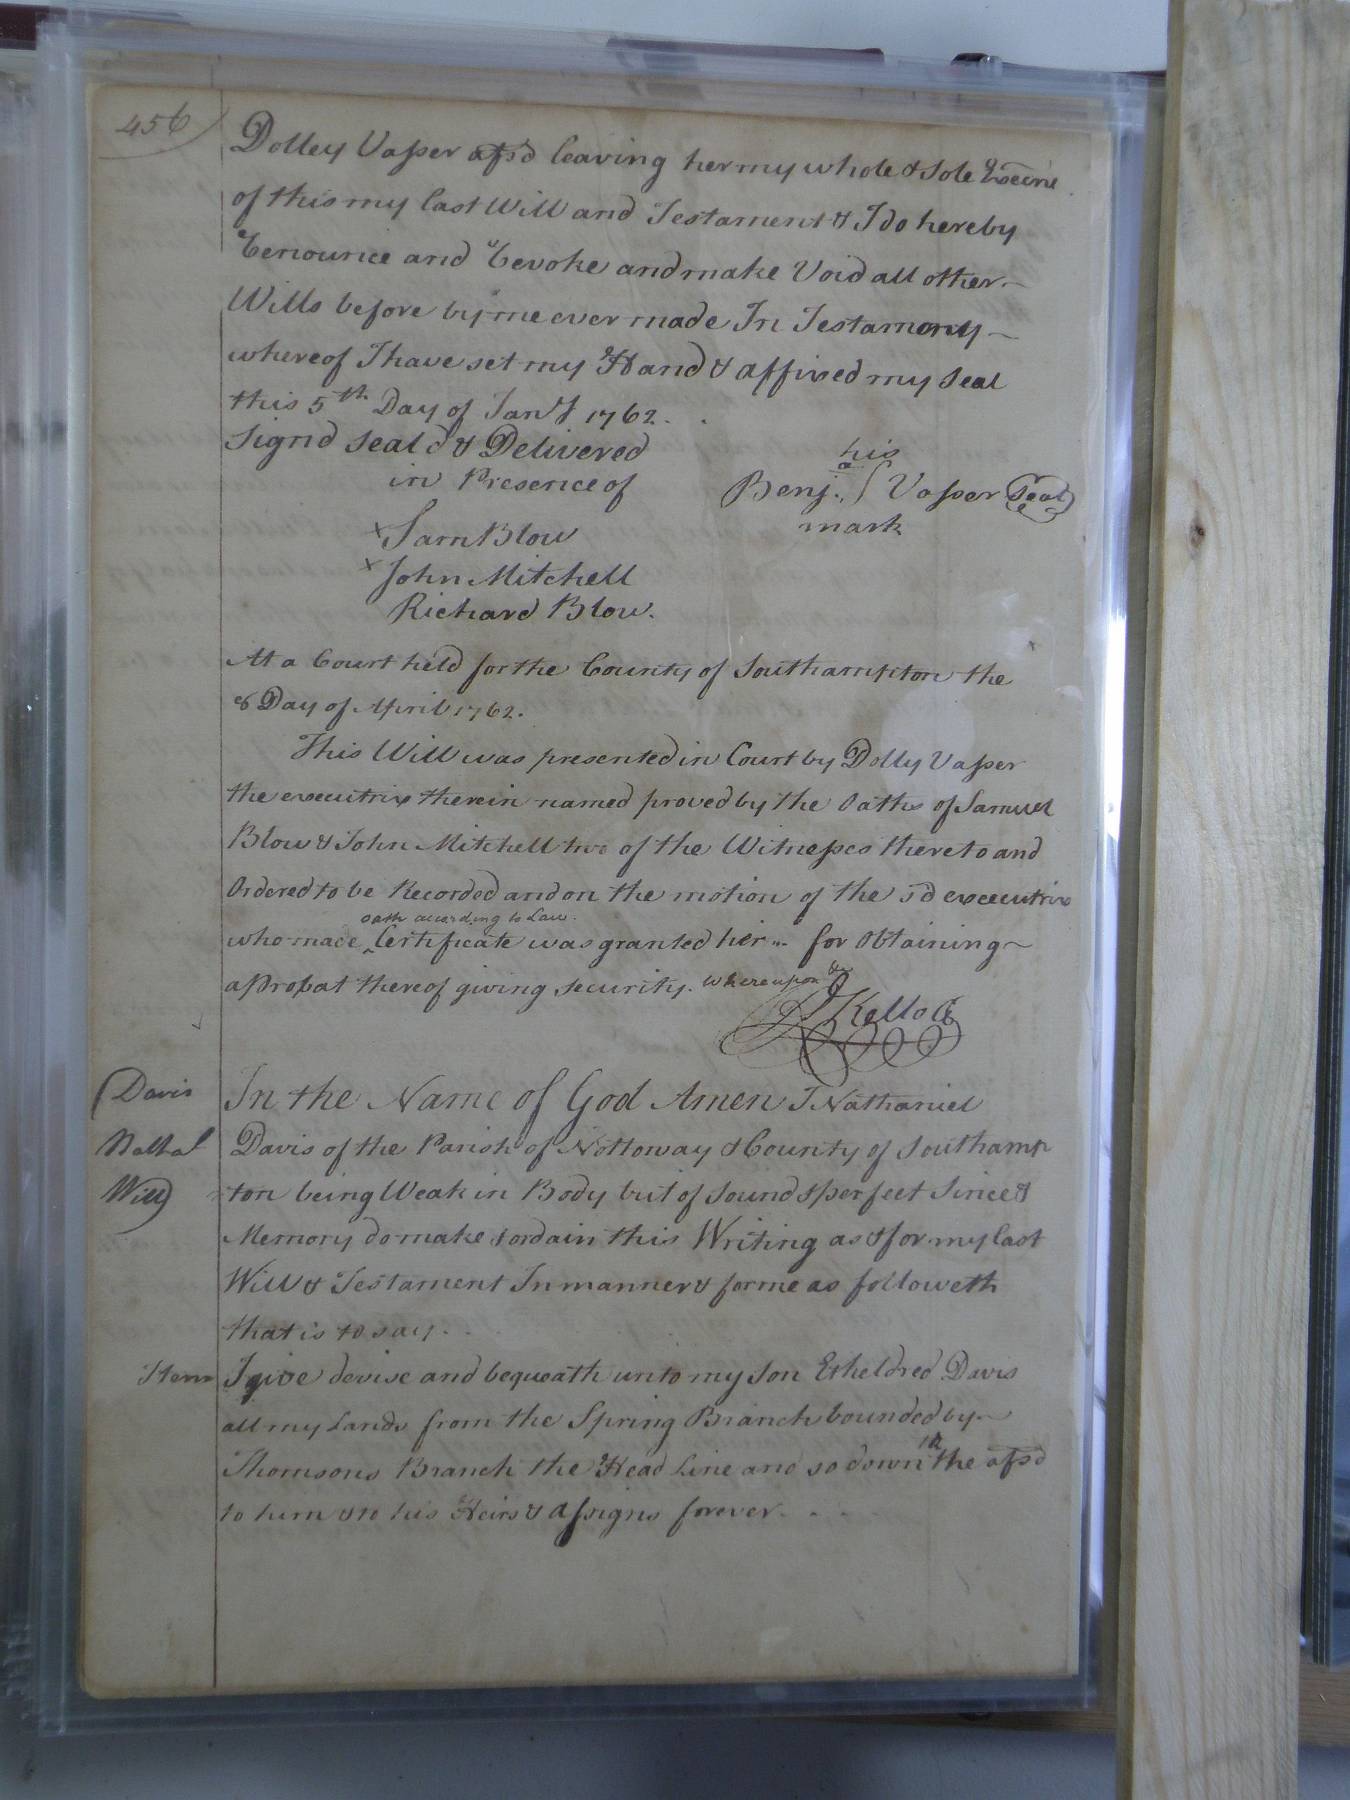 456
Dolley Vasser afsd leaving her my whole & Sole Execrx
of this my last Will and Testament & I do hereby
Renounce and Revoke and make Void all other
Wills before by me ever made In Testamony
whereof I have set my Hand & affixed my Seal
this 5th Day of Jany 1762.
Signd Seald & Delivered
in Presence of
his
Benja. Vasser Seal
mark
Sam Blow
John Mitchell
Richard Blow.
At a Court held for the County of Southampton the
8 Day of April 1762.
This Will was presented in Court by Dolly Vasser
the executrix therein named proved by the Oaths of Samuel
Blow & John Mitchell two of the Witnesses thereto and
Ordered to be Recorded and on the motion of the sd executrix
oath according to Law.
who made Certificate was granted her for Obtaining
a Probat thereof giving security. whereupon &c
Kello
Davis
Nathal
Will
In the Name of God Amen I Nathaniel
Davis of the Parish of Nottoway & County of Southamp
ton being Weak in Body but of Sound & perfect Since &
Memory do make & ordain this Writing as & for my last
Will & Testament In manner & forme as followeth
that is to say.
Item I give devise and bequeath unto my Son Etheldred Davis
all my Lands from the Spring Branch bounded by
Thomsons Branch the Head Line and so down to the afsd
to him & to his Heirs & assigns forever.